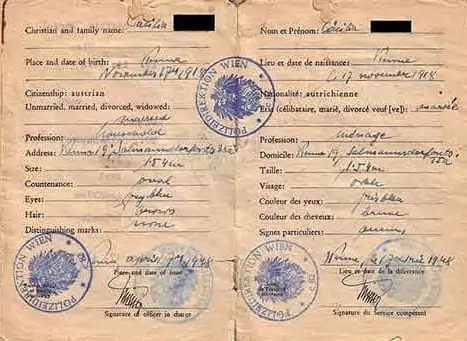 Christian and family name: Cäcilia
Place and date of birth: Vienna
November 17th 1908
Citizenship: austrian
Unmarried, married, divorced, widowed:
married
Profession: household
Address: Vienna 19, Salmannsdorferstr. 35a
Size: 1.54 m
Countenance: oval
Eyes: greyblue
Hair: brown
Distinguishing marks: none
april 7th, 1948
Place and date of issue
Signature of officer in charge
POLIZEIDIREKTION WIEN
Nom et Prénom: Cäcilia
Lieu et date de naisance: Vienne
le 17 novembre 1908
Nationalité: autrichienne
Etat (célibataire, marié, divorcé veuf [ve]): mariée
Profession: ménage
Domicile: Vienne 19, Salmannsdorferstr.
35a
Taille: 1.54 m
Visage: ovale
Couleur des yeux: gris bleu
Couleur des cheveux: brune
Signes particuliers: aucuns
Vienne, le 7 avril 1948
Lieu et date de la délivrance
Signature du Service compétent
POLIZEIDIREKTION WIEN
POLIZEIDIREKTION WIEN